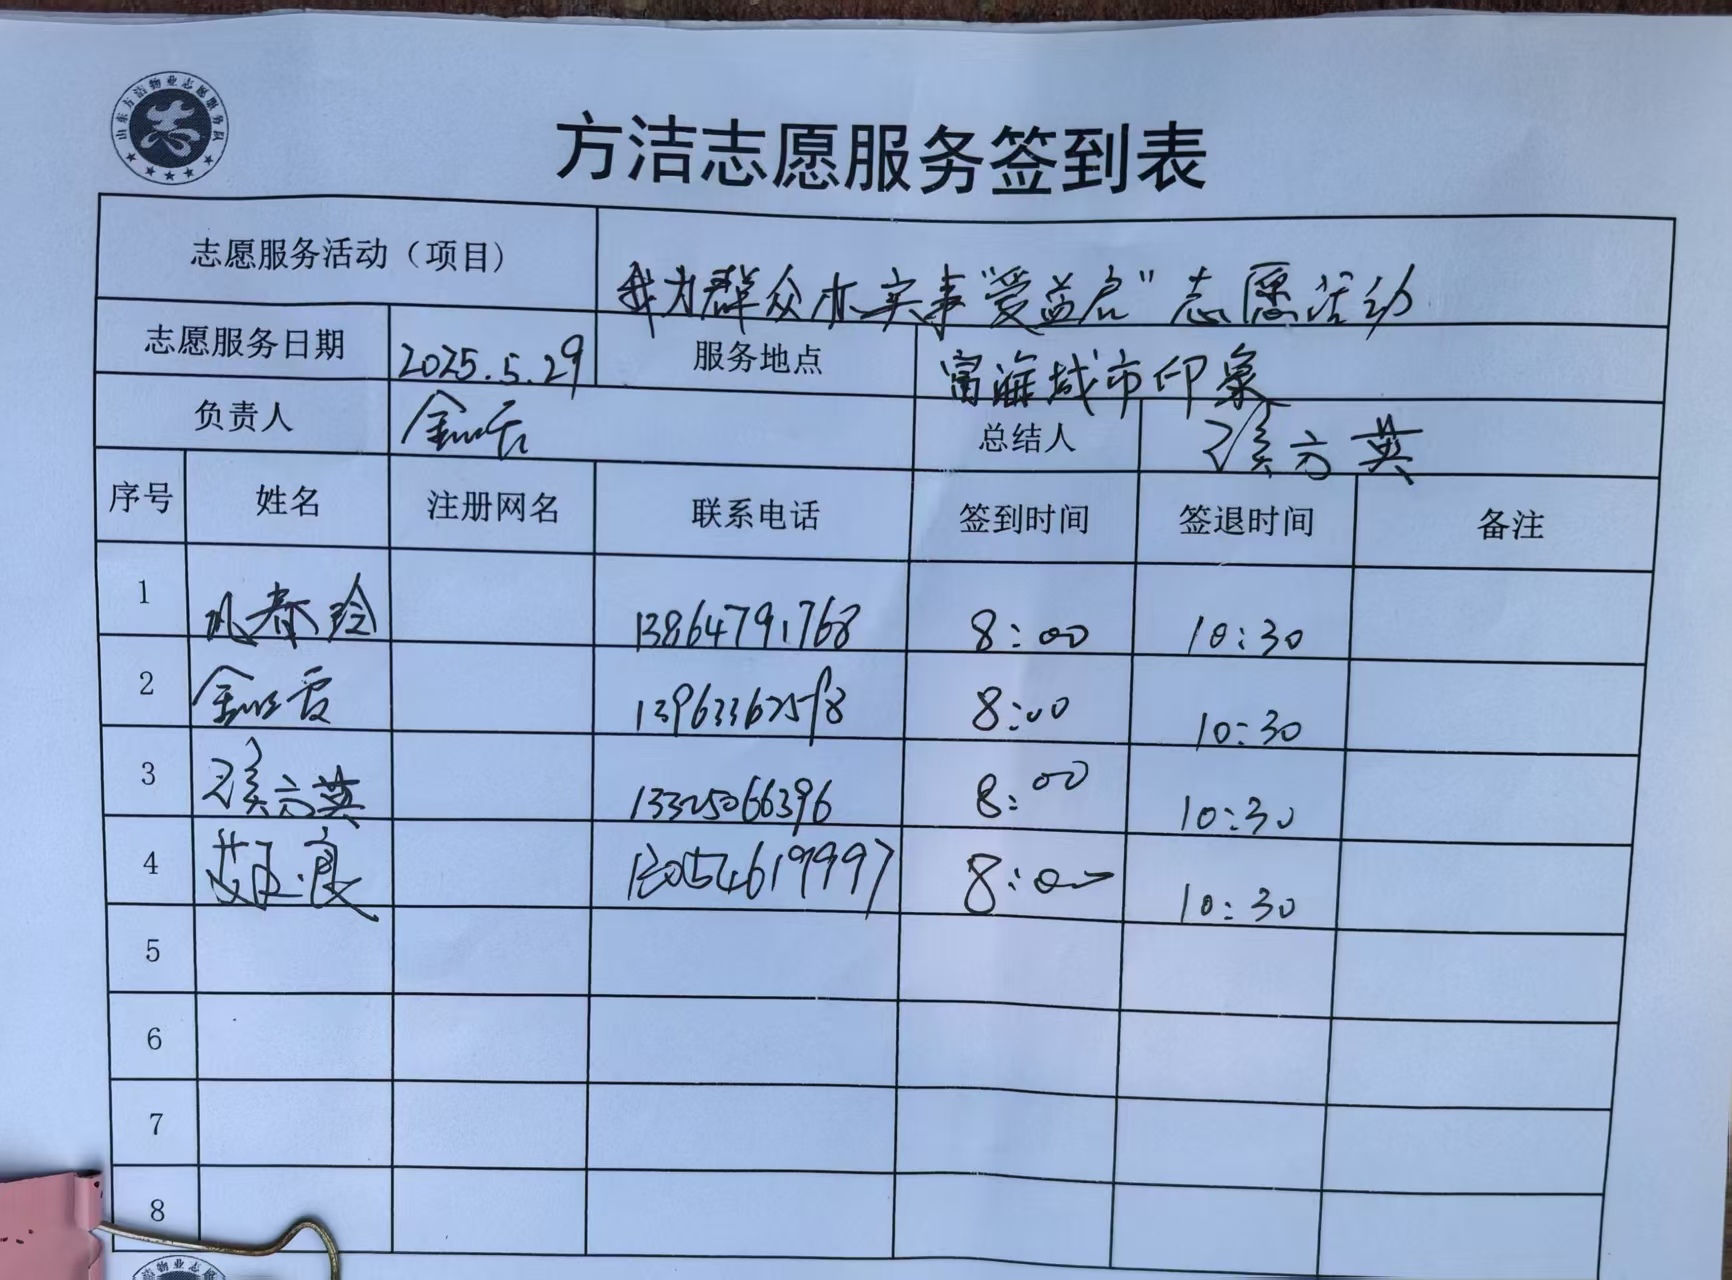 山东方洁物业志愿服务队
志
方洁志愿服务签到表
志愿服务活动（项目） 我为群众办实事"爱益启"志愿活动
志愿服务日期 2025.5.29 服务地点 富海城市印象
负责人 总结人 方英
序号 姓名 注册网名 联系电话 签到时间 签退时间 备注
1 春玲 13864791768 8:00 10:30
2 8:00 10:30
3 方英 13325066396 8:00 10:30
4 艾玉良 13054619997 8:00 10:30
5
6
7
8